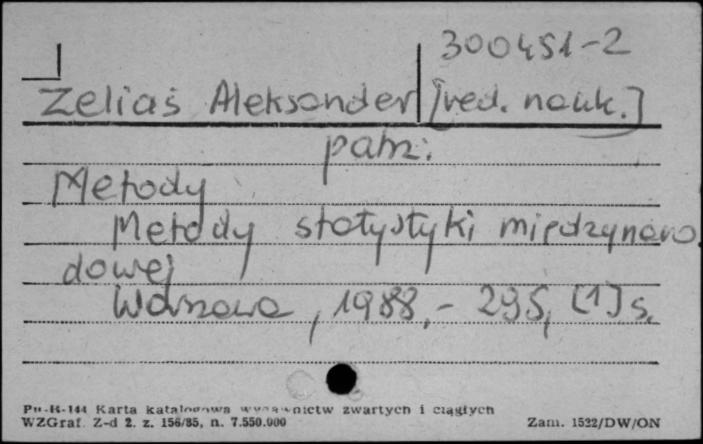 300451-2
Zeliaś Aleksander [red. nauk.]
patrz:
Metody
Metody statystyki międzynaro
dowej
Warszawa, 1988.- 295, [1] s.
Pu-K-144 Karta katalogowa wydawnictw zwartych i ciągłych
WZGraf. Z-d 2. z. 156/85, n. 7.550.000 Zam. 1522/DW/ON